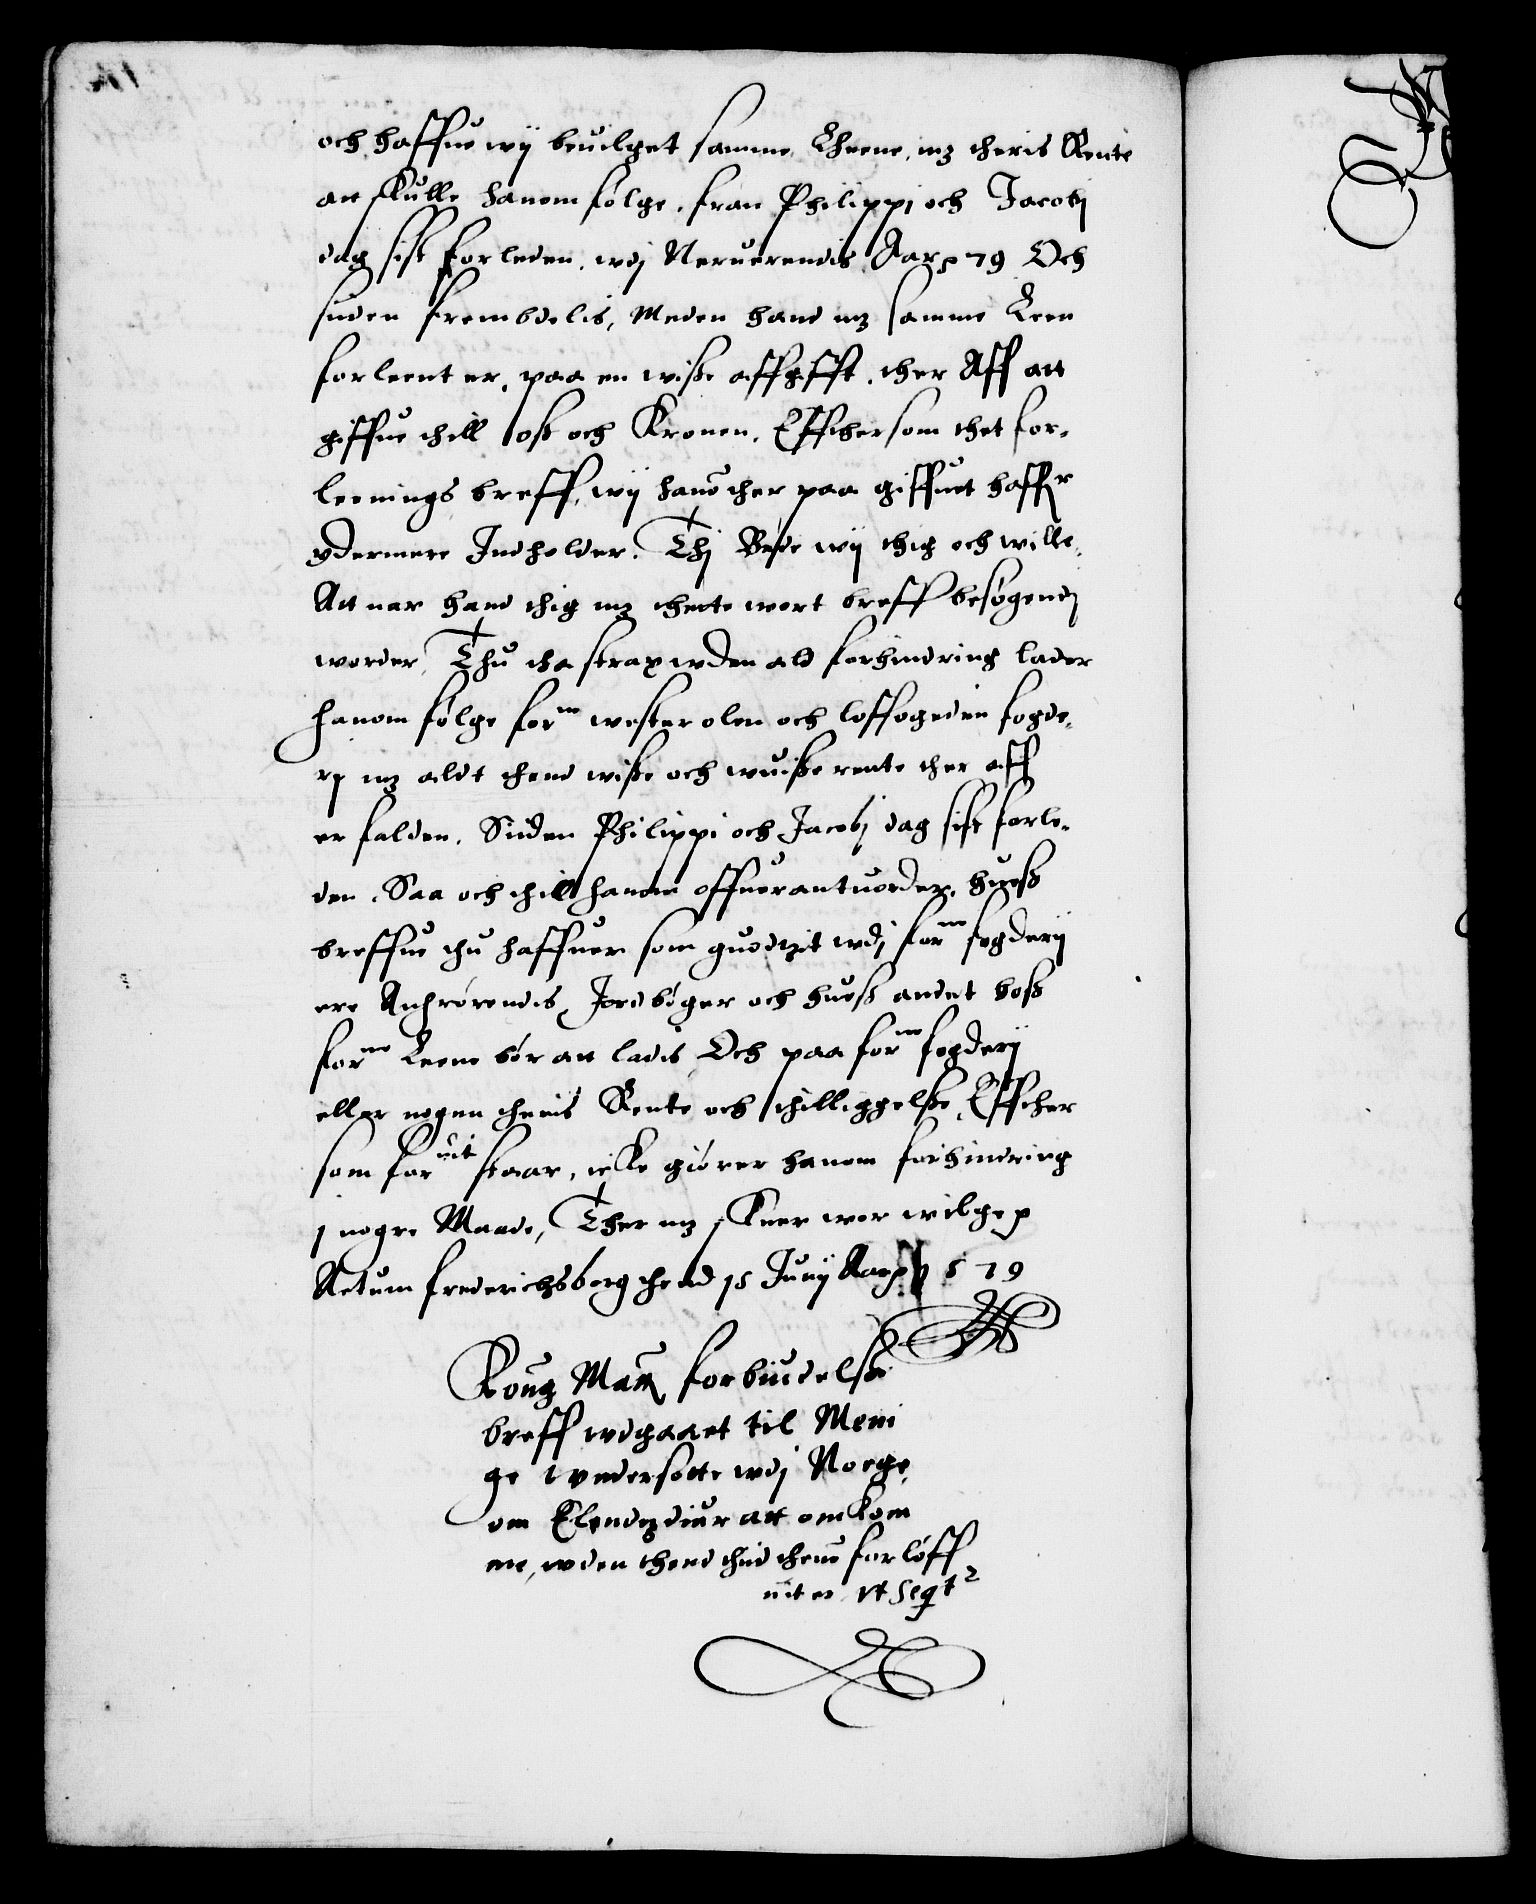 och haffue wij beuilget samme Lheene, mz theris Rente
att skulle hanom følge, fran Philippi och Jacobi
dag sist forleden, wdj Neruerendis Aar 79 Och
siden frembdelis, Meden hand mz samme Leen
forleent er, paa en wisse affgifft, ther Aff att
giffue thill oss och Kronen, Effthersom thet for-
leenings breff, wij hanō ther paa giffuet haffr
ydermere Indholder. Thj Bede wij thig och wille,
Att nar hand thig mz thette wort breff besøgendj
worder, Thu tha strax wden ald forhindring lader
hanom følge forne westerolen och loffogeden fogde-
rj mz aldt thend wisse och wuisse rente ther aff
er falden, Siden Philippi och Jacobj dag sist forle-
den, Saa och thill hanom offuerantuorder, huess
breffue thu haffuer som guodtzit wdj forne fogderij
ere Anhrørendis, Jordbøger och huess andet hoss
forne Leene bør att ladis, Och paa forne fogderij
eller nogen theris Rente och thilliggelsse, Effther
som foruit staar, icke giører hanom forhindring
j nogre Maade, Ther mz skeer wor wilge
Actum frederichsborg thend 15 Junij Aar 1579
Kong Matt forbiudelsse
breff wdgaaet til Meni
ge wndersotte wdj Norge,
om Elendzdiur att omkom
me, wden thend thid thene forløff
uit er vt seqt